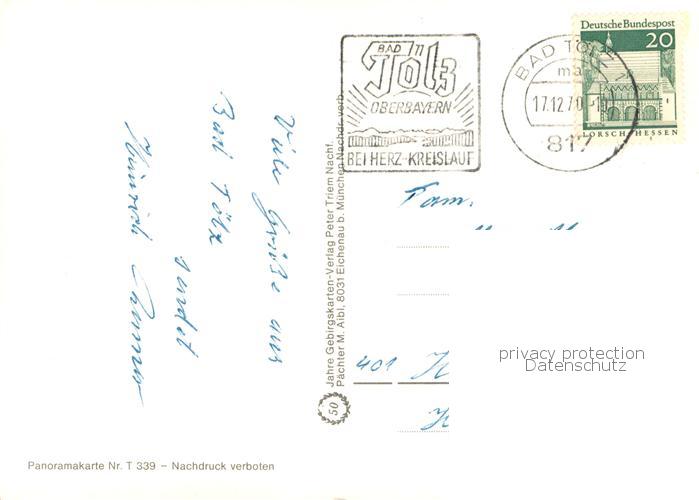 Deutsche Bundespost
20
LORSCH/HESSEN
BAD TÖLZ
17.12.70
817
BAD
Tölz
OBERBAYERN
BEI HERZ-KREISLAUF
Viele Grüße aus
Bad Tölz
sendet
Heinrich
Jahre Gebirgskarten-Verlag Peter Triem Nachf.
Pächter M. Aibl, 8031 Eichenau b. München Nachdr. verb.
50
Fam.
401
privacy protection
Datenschutz
Panoramakarte Nr. T 339 – Nachdruck verboten